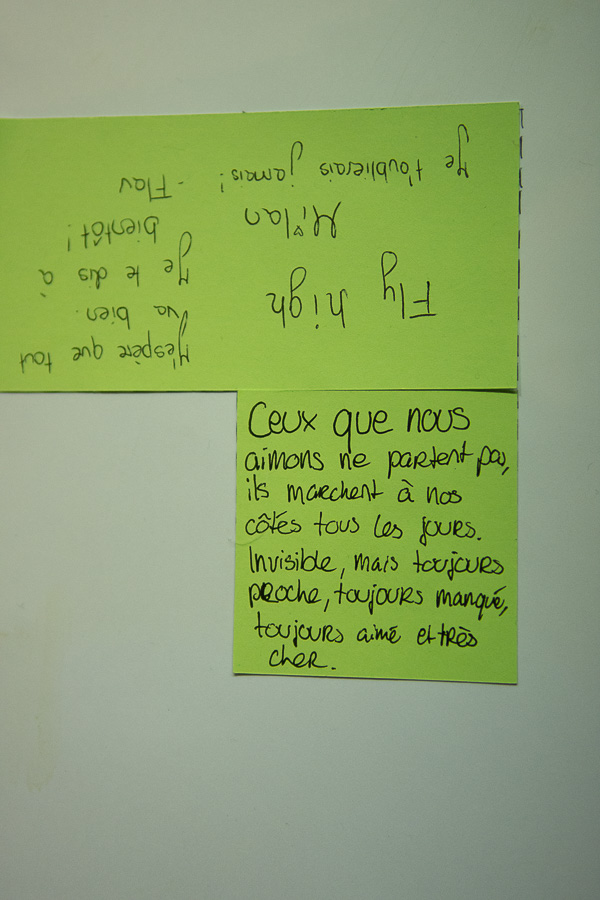 Fly high
Milan
Je t'oublierais jamais !
J'espère que tout
va bien.
Je te dis à
bientôt !
- Flav
Ceux que nous
aimons ne partent pas,
ils marchent à nos
côtés tous les jours.
Invisible, mais toujours
proche, toujours manqué,
toujours aimé et très
cher.